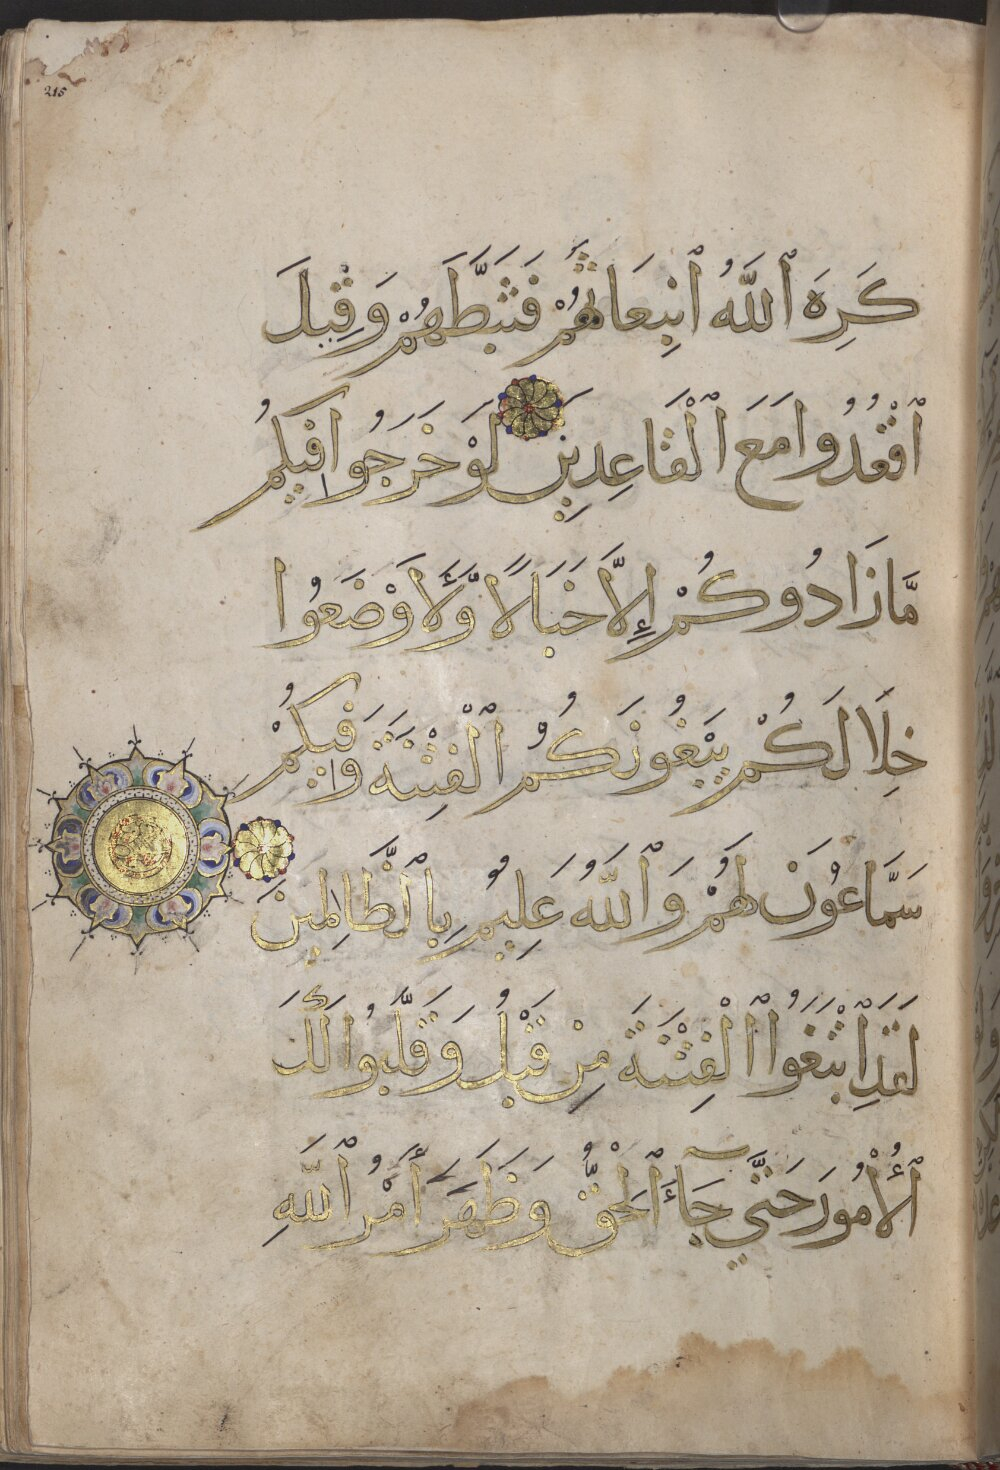 215
كَرِهَ ٱللَّهُ ٱنۢبِعَاثَهُمْ فَثَبَّطَهُمْ وَقِيلَ
ٱقْعُدُوا مَعَ ٱلْقَاعِدِينَ لَوْ خَرَجُوا فِيكُمْ
مَّا زَادُوكُمْ إِلَّا خَبَالًا وَّلَأَوْضَعُوا
خِلَالَكُمْ يَبْغُونَكُمُ ٱلْفِتْنَةَ وَفِيكُمْ
سَمَّاعُونَ لَهُمْ وَٱللَّهُ عَلِيمٌ بِٱلظَّالِمِينَ
لَقَدِ ٱبْتَغَوُا ٱلْفِتْنَةَ مِنْ قَبْلُ وَقَلَّبُوا لَكَ
ٱلْأُمُورَ حَتَّىٰ جَآءَ ٱلْحَقُّ وَظَهَرَ أَمْرُ ٱللَّهِ